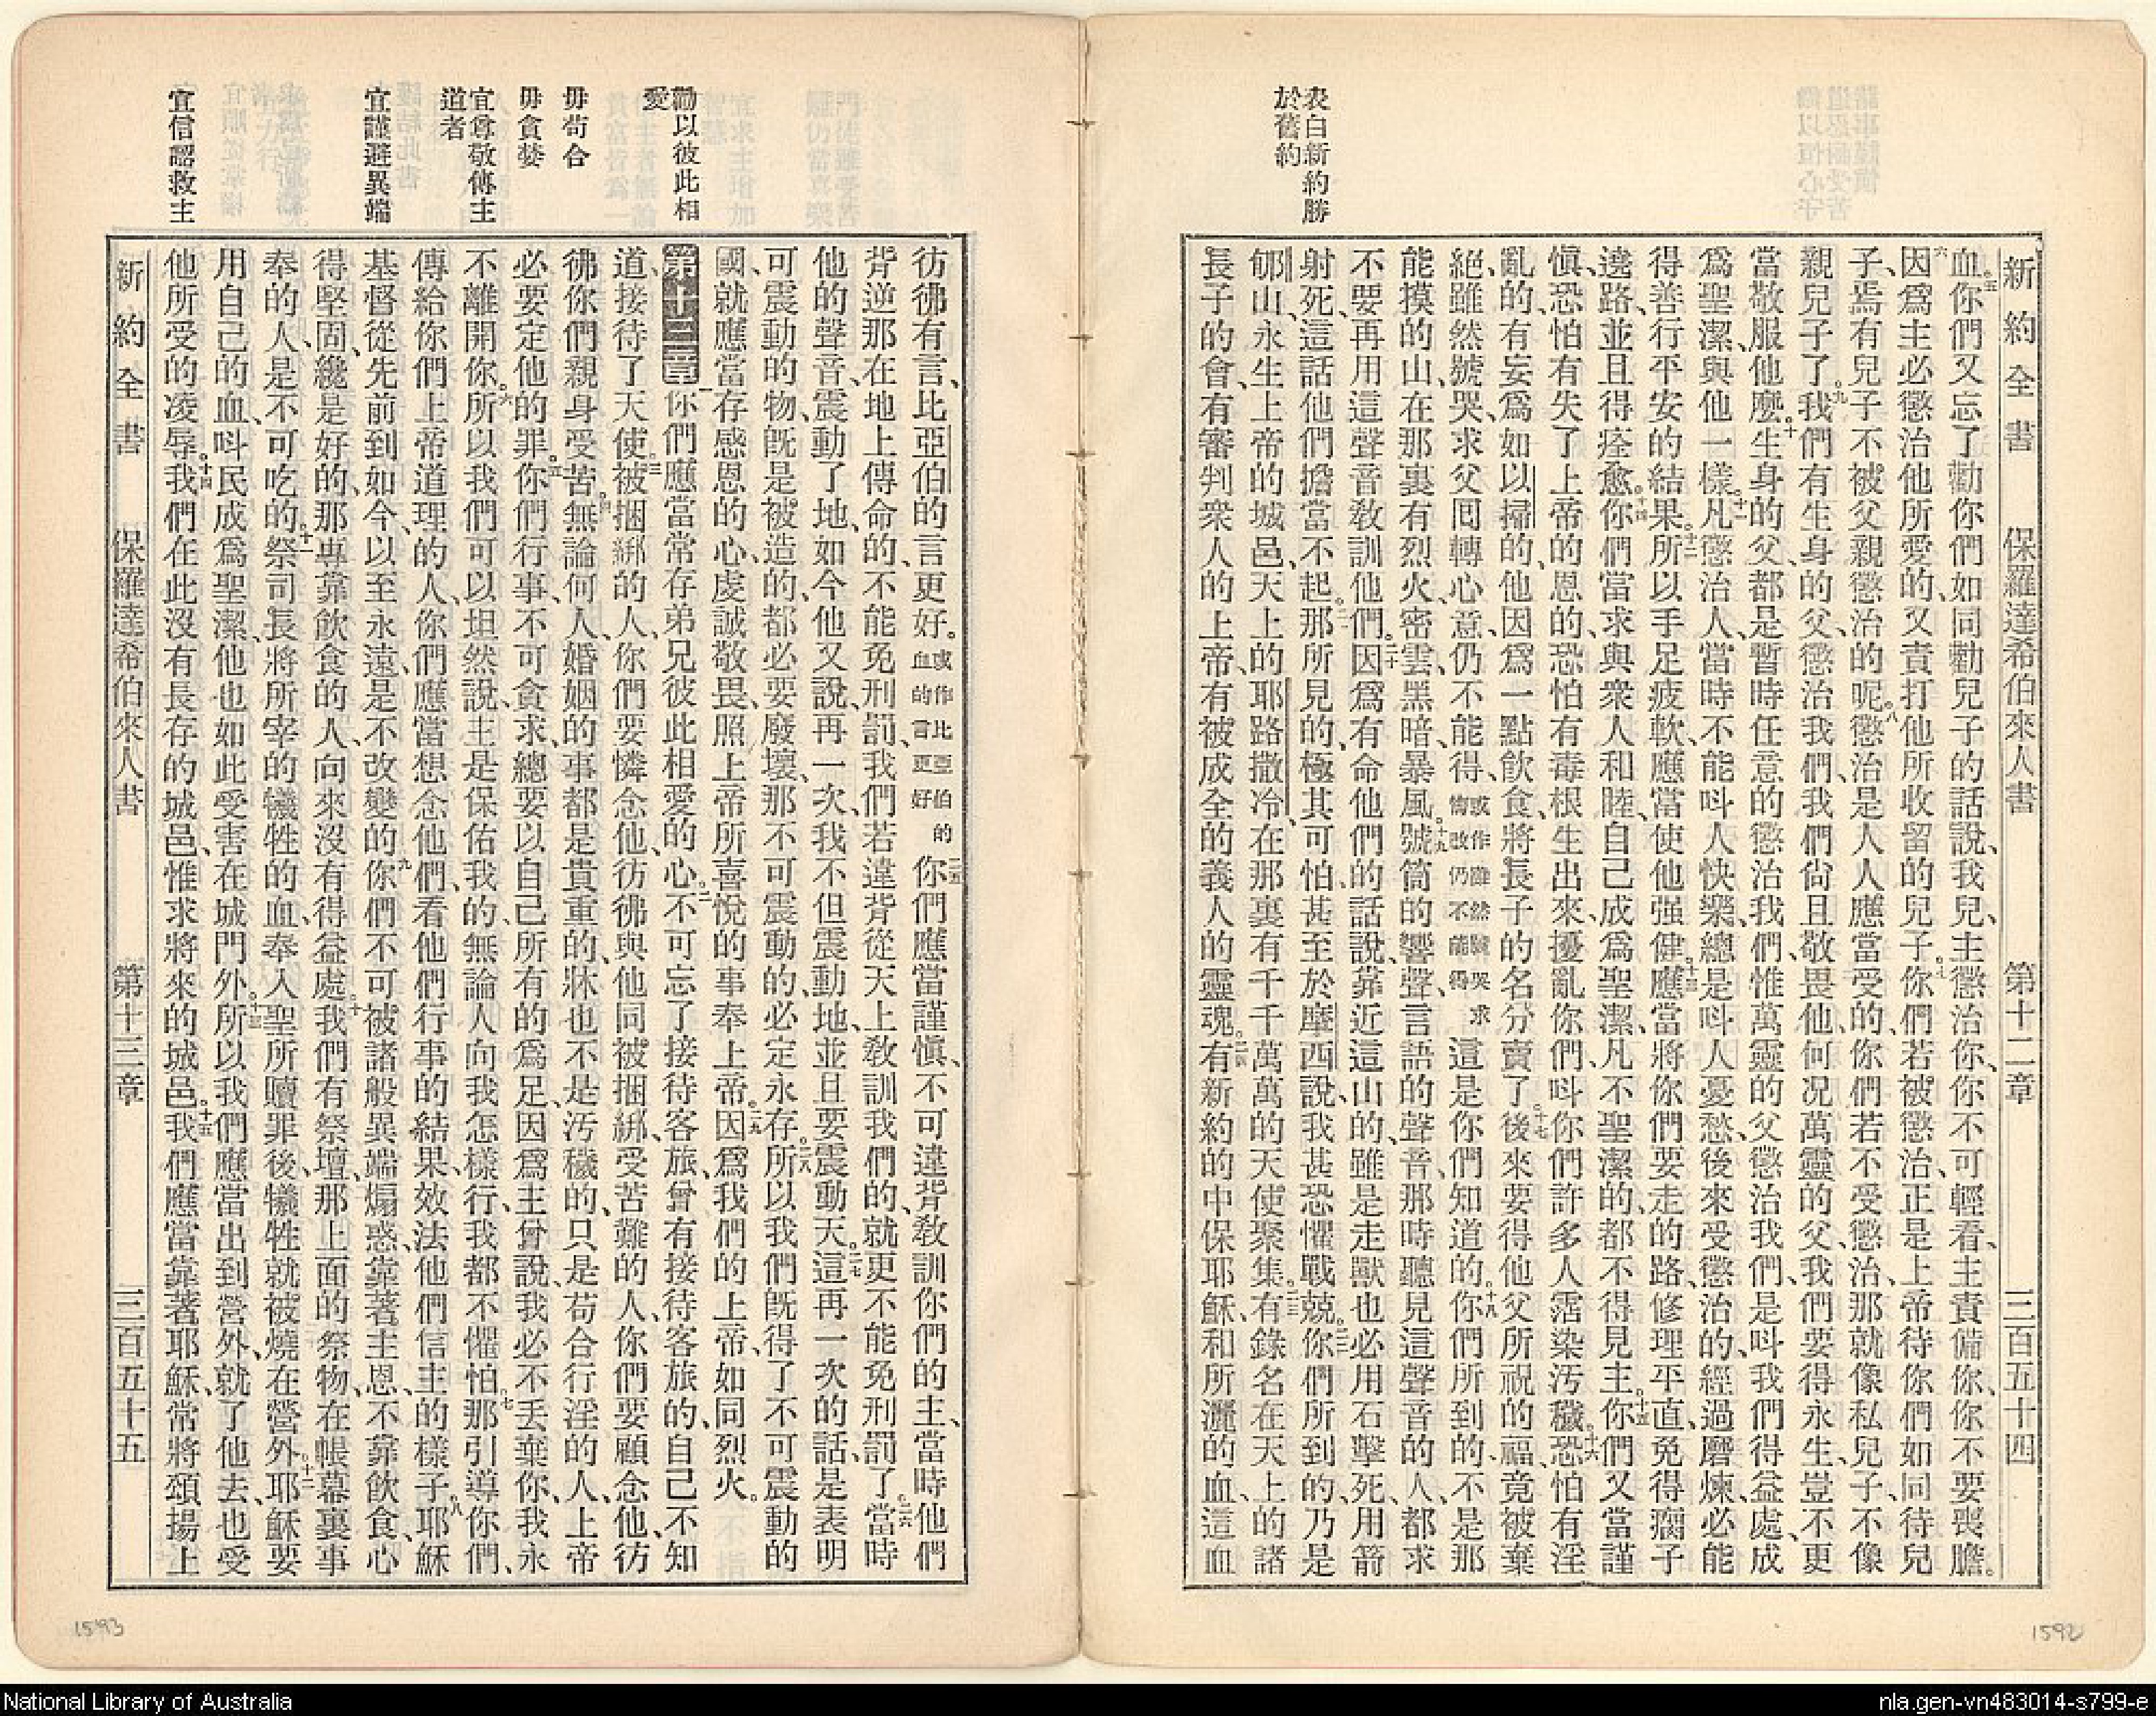 新約全書 保羅達希伯來人書 第十二章 三百五十四
血。五你們又忘了勸你們如同勸兒子的話說、我兒、主懲治你、你不可輕看、主責備你、你不要喪膽。
六因爲主必懲治他所愛的、又責打他所收留的兒子。七你們若被懲治、正是上帝待你們如同待兒
子、焉有兒子不被父親懲治的呢。八懲治是人人應當受的、你們若不受懲治、那就像私兒子、不像
親兒子了。九我們有生身的父、懲治我們、我們尙且敬畏他、何况萬靈的父、我們要得永生、豈不更
當敬服他麼。十生身的父、都是暫時任意的懲治我們、惟萬靈的父懲治我們、是呌我們得益處、成
爲聖潔、與他一樣。十一凡懲治人、當時不能呌人快樂、總是呌人憂愁、後來受懲治的、經過磨煉、必能
得善行平安的結果。十二所以手足疲軟、應當使他强健。十三應當將你們要走的路、修理平直、免得瘸子
邊路、並且得痊愈。十四你們當求與衆人和睦、自己成爲聖潔、凡不聖潔的、都不得見主。十五你們又當謹
愼、恐怕有失了上帝的恩的、恐怕有毒根生出來、擾亂你們、呌你們許多人霑染汚穢。十六恐怕有淫
亂的、有妄爲如以掃的、他因爲一點飲食、將長子的名分賣了。十七後來要得他父所祝的福、竟被棄
絕、雖然號哭、求父囘轉心意、仍不能得、或作雖然號哭求悔改仍不能得 這是你們知道的。十八你們所到的、不是那
能摸的山、在那裏有烈火、密雲、黑暗、暴風。十九號筒的響聲、言語的聲音、那時聽見這聲音的人、都求
不要再用這聲音敎訓他們。二十因爲有命他們的話說、靠近這山的、雖是走獸、也必用石擊死、用箭
射死、這話他們擔當不起。二一那所見的、極其可怕、甚至於摩西說、我甚恐懼戰兢。二二你們所到的、乃是
郇山、永生上帝的城邑、天上的耶路撒冷、在那裏有千千萬萬的天使聚集。二三有錄名在天上的諸
長子的會、有審判衆人的上帝、有被成全的義人的靈魂。二四有新約的中保耶穌、和所灑的血、這血
表白新約勝
於舊約
彷彿有言、比亞伯的言更好。或作比亞伯的血的言更好 二五你們應當謹愼、不可違背敎訓你們的主、當時他們
背逆那在地上傳命的、不能免刑罰、我們若違背從天上敎訓我們的、就更不能免刑罰了。二六當時
他的聲音、震動了地、如今他又說、再一次、我不但震動地、並且要震動天。二七這再一次的話、是表明
可震動的物、旣是被造的、都必要廢壞、那不可震動的、必定永存。二八所以我們旣得了不可震動的
國、就應當存感恩的心、虔誠敬畏、照上帝所喜悅的事奉上帝。二九因爲我們的上帝、如同烈火。
第十三章 一你們應當常存弟兄彼此相愛的心。二不可忘了接待客旅、曾有接待客旅的、自己不知
道、接待了天使。三被捆綁的人、你們要憐念他、彷彿與他同被捆綁、受苦難的人、你們要顧念他、彷
彿你們親身受苦。四無論何人、婚姻的事、都是貴重的、牀也不是汚穢的、只是苟合行淫的人、上帝
必要定他的罪。五你們行事、不可貪求、總要以自己所有的爲足、因爲主曾說、我必不丢棄你、我永
不離開你。六所以我們可以坦然說、主是保佑我的、無論人向我怎樣行、我都不懼怕。七那引導你們、
傳給你們上帝道理的人、你們應當想念他們、看他們行事的結果、效法他們信主的樣子。八耶穌
基督從先前到如今、以至永遠、是不改變的。九你們不可被諸般異端煽惑、靠著主恩、不靠飲食、心
得堅固、纔是好的、那專靠飲食的人、向來沒有得益處。十我們有祭壇、那上面的祭物、在帳幕裏事
奉的人、是不可吃的。十一祭司長將所宰的犧牲的血、奉入聖所贖罪後、犧牲就被燒在營外。十二耶穌要
用自己的血、呌民成爲聖潔、他也如此受害在城門外。十三所以我們應當出到營外、就了他去、也受
他所受的凌辱。十四我們在此沒有長存的城邑、惟求將來的城邑。十五我們應當靠著耶穌、常將頌揚上
新約全書 保羅達希伯來人書 第十三章 三百五十五
勸以彼此相
愛
毋苟合
毋貪婪
宜尊敬傳主
道者
宜謹避異端
宜信認救主
1593
1592
National Library of Australia
nla.gen-vn483014-s799-e